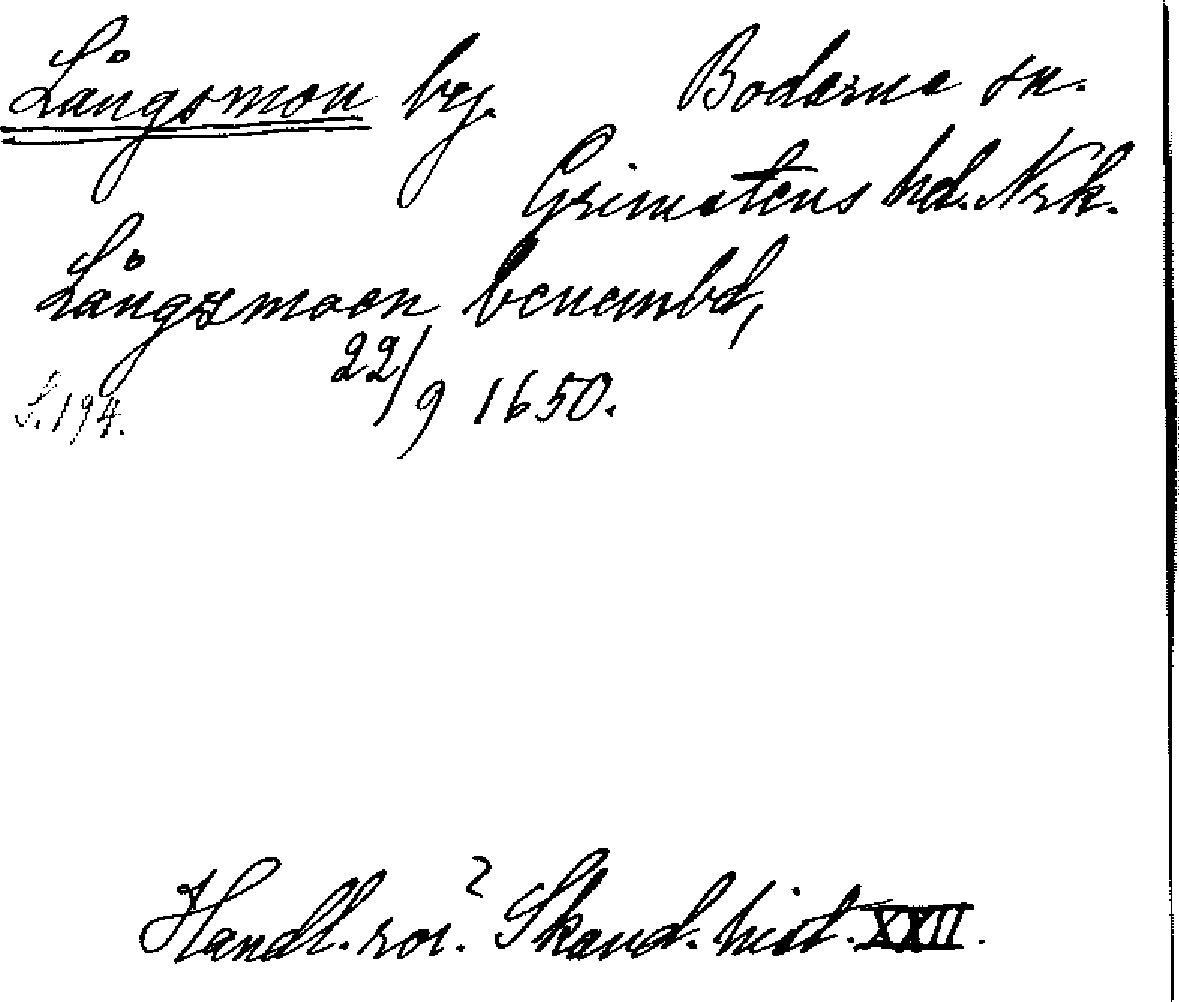 Långsmon by. Bodarne sn.
Grimstens hd. Nrk.
Långzmoen benembd,
22/9 1650.
S. 194.
Handl. rör. Skand. hist. XXII.